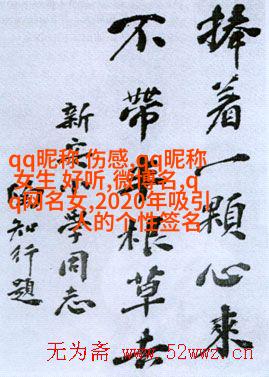 捧着一顆心來
不帶半根草去
新 小學同志
知行題
qq昵称 伤感,qq昵称
女生 好听,微博名,q
q网名女,2020年吸引
人的个性签名
无为斋 www.52wwz.cn